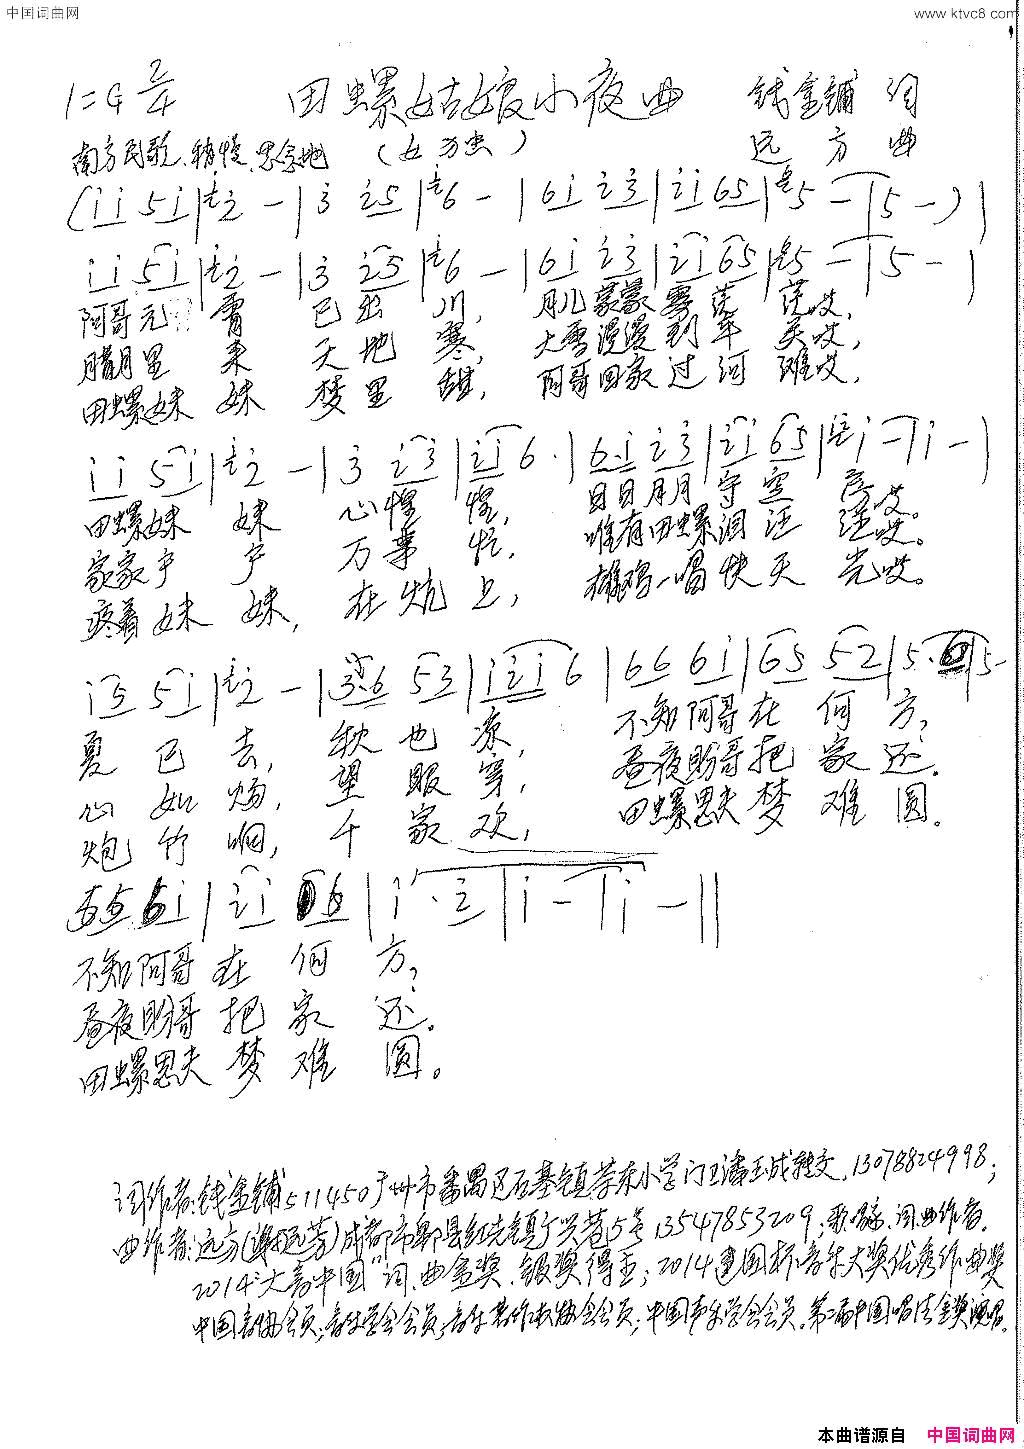 中国词曲网
www.ktvc8.com
1=G 2/4
田螺姑娘小夜曲
钱金铺 词
南方民歌、稍慢、思念地
(女高)
远方 曲
(i i 5 i | 2 - | 3 2 5 | 6 - | 6 i 2 3 | 2 i 6 5 | 5 - | 5 - ) |
i i 5 i | 2 - | 3 2 5 | 6 - | 6 i 2 3 | 2 i 6 5 | 5 - | 5 - |
阿哥元宵 已出川, 月儿蒙蒙雾茫茫哎,
腊月里来天地寒, 大雪漫漫到年关哎,
田螺妹妹梦里甜, 阿哥回家过河难哎,
i i 5 i | 2 - | 3 2 3 | 2 i 6 · | 6 · i 2 3 | 2 i 6 5 | i - | i - |
田螺妹妹心惶惶, 日日月月守空房哎。
家家户户万事忙, 唯有田螺泪汪汪哎。
疼着妹妹,在炕上, 雄鸡一唱快天光哎。
i 5 5 i | 2 - | 3 · 6 5 3 | i 2 i 6 | 6 6 6 i | 6 5 5 2 | 5 · 6 | 5 -
夏已去,秋也凉, 不知阿哥在何方?
心如焬,望眼穿, 昼夜盼哥把家还.
炮竹响,千家欢, 田螺思夫梦难圆.
5 5 6 i | 2 i 6 | i · 2 | i - | i - ||
不知阿哥在何方?
昼夜盼哥把家还.
田螺思夫梦难圆.
词作者:钱金铺511450广州市番禺区石基镇茶东小学门卫潘玉成转交,13078824998;
曲作者:远方(谢远芳)成都市郫县红光镇广兴巷5号13547853209;歌唱家.词.曲作者.
2014"大音中国"词.曲金奖.银奖得主;2014建国杯音乐大奖优秀作曲奖
中国音协会员;音乐学会会员;音乐著作权协会会员;中国声乐学会会员.第二届中国唱法金奖演唱.
本曲谱源自 中国词曲网